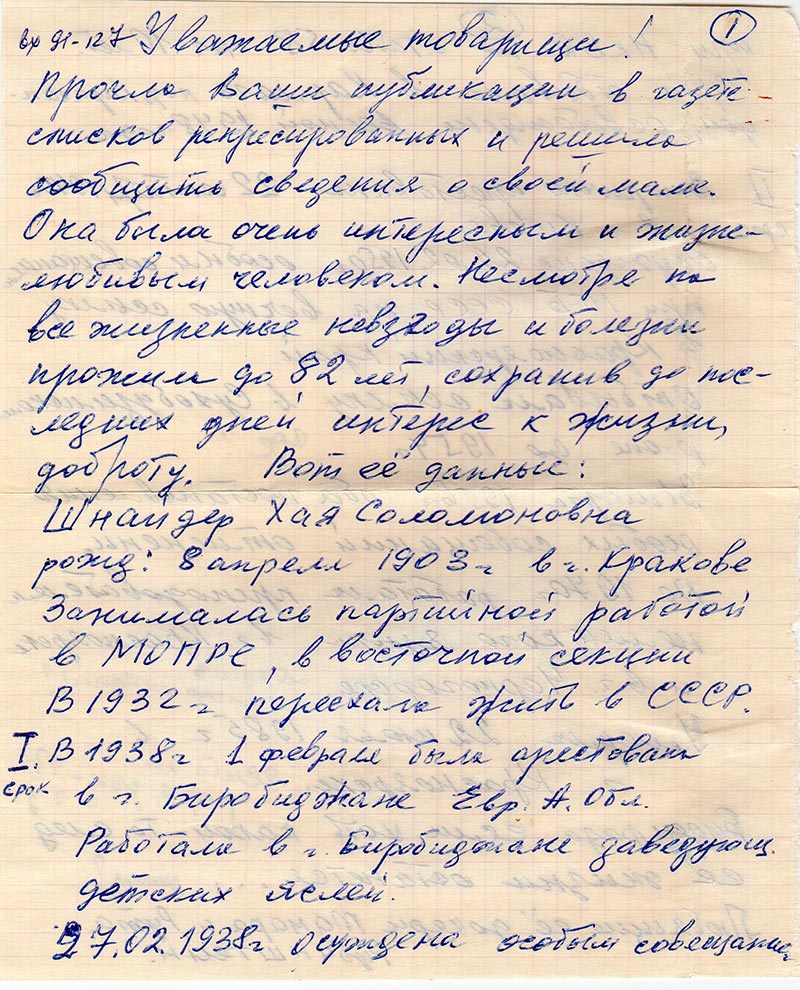 вх 91-127 Уважаемые товарищи! 1
Прочла Ваши публикации в газете
списков репресированных и решила
сообщить сведения о своей маме.
Она была очень интересным и жизне-
любивым человеком. Несмотря на
все жизненные невзгоды и болезни
прожила до 82 лет, сохранив до пос-
ледних дней интерес к жизни,
доброту. Вот её данные:
Шнайдер Хая Соломоновна
рожд: 8 апреля 1903 г в г. Кракове
Занималась партийной работой
в МОПРЕ, в восточной секции
В 1932 г переехала жить в СССР.
I. В 1938 г 1 февраля была арестована
срок в г. Биробиджане Евр. А. Обл.
Работала в г. Биробиджане заведующ.
детских яслей.
27.02.1938 г осуждена особым совещанием